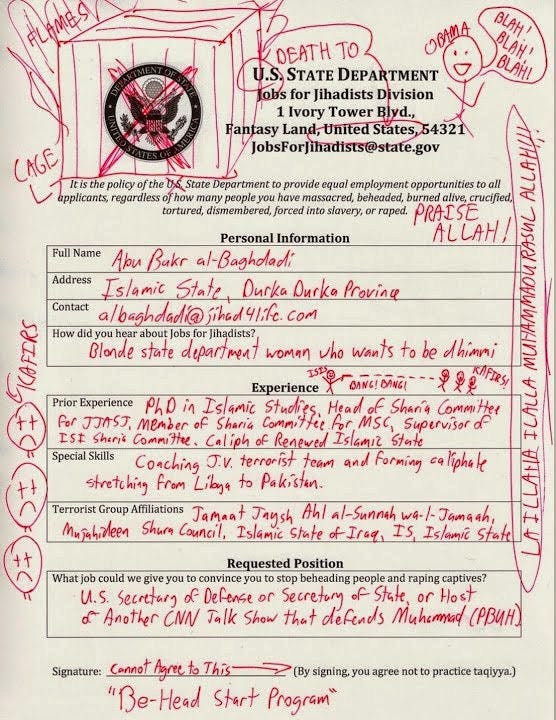 FLAMES
CAGE
DEPARTMENT OF STATE
UNITED STATES OF AMERICA
DEATH TO
U.S. STATE DEPARTMENT
Jobs for Jihadists Division
1 Ivory Tower Blvd.,
Fantasy Land, United States, 54321
JobsForJihadists@state.gov
OBAMA
BLAH!
BLAH!
BLAH!
It is the policy of the U.S. State Department to provide equal employment opportunities to all
applicants, regardless of how many people you have massacred, beheaded, burned alive, crucified,
tortured, dismembered, forced into slavery, or raped.
PRAISE
ALLAH!
LA ILLAHA ILALLA MUHAMMADU RASUL ALLAH!!!
Personal Information
Full Name Abu Bakr al-Baghdadi
Address Islamic State, Durka Durka Province
Contact albaghdadi@jihad4life.com
How did you hear about Jobs for Jihadists?
Blonde state department woman who wants to be dhimmi
KAFIRS
ISIS
BANG! BANG!
KAFIRS!
Experience
Prior Experience PhD in Islamic Studies, Head of Sharia Committee
for JJASJ, Member of Sharia Committee for MSC, Supervisor of
ISI Sharia Committee. Caliph of Renewed Islamic State
Special Skills Coaching J.V. terrorist team and forming caliphate
stretching from Libya to Pakistan.
Terrorist Group Affiliations Jamaat Jaysh Ahl al-Sunnah wa-l-Jamaah,
Mujahideen Shura Council, Islamic State of Iraq, IS, Islamic State
Requested Position
What job could we give you to convince you to stop beheading people and raping captives?
U.S. Secretary of Defense or Secretary of State, or Host
of Another CNN Talk Show that defends Muhammad (PBUH)
Signature: Cannot Agree to This (By signing, you agree not to practice taqiyya.)
"Be-Head Start Program"